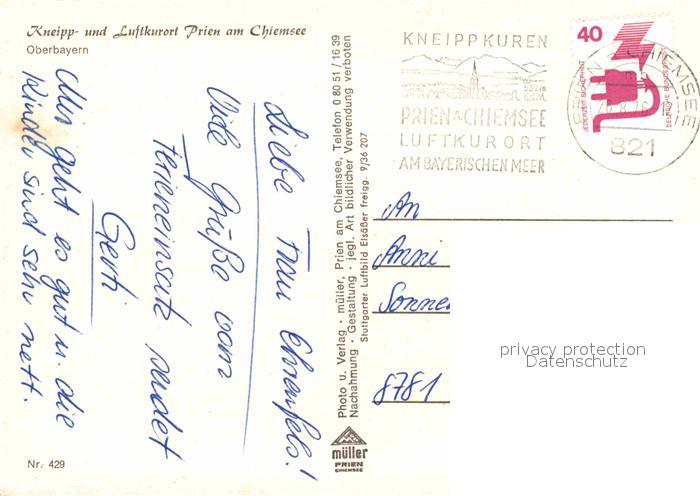 Kneipp- und Luftkurort Prien am Chiemsee
Oberbayern
Liebe Frau Ehrenfels!
Viele Grüße vom
Ferieneinsatz sendet
Gerti
Mir geht es gut u. die
Kinder sind sehr nett.
Nr. 429
Photo u. Verlag · müller, Prien am Chiemsee, Telefon 0 80 51 / 16 39
Nachahmung · Gestaltung · jegl. Art bildlicher Verwendung verboten
Stuttgarter Luftbild Elsäßer freigg. 9/36 207
müller
PRIEN
CHIEMSEE
KNEIPPKUREN
PRIEN A. CHIEMSEE
LUFTKURORT
AM BAYERISCHEN MEER
40
JEDERZEIT SICHERHEIT
DEUTSCHE BUNDESPOST
PRIEN A CHIEMSEE
821
An
Anni
Sonne
8781
privacy protection
Datenschutz